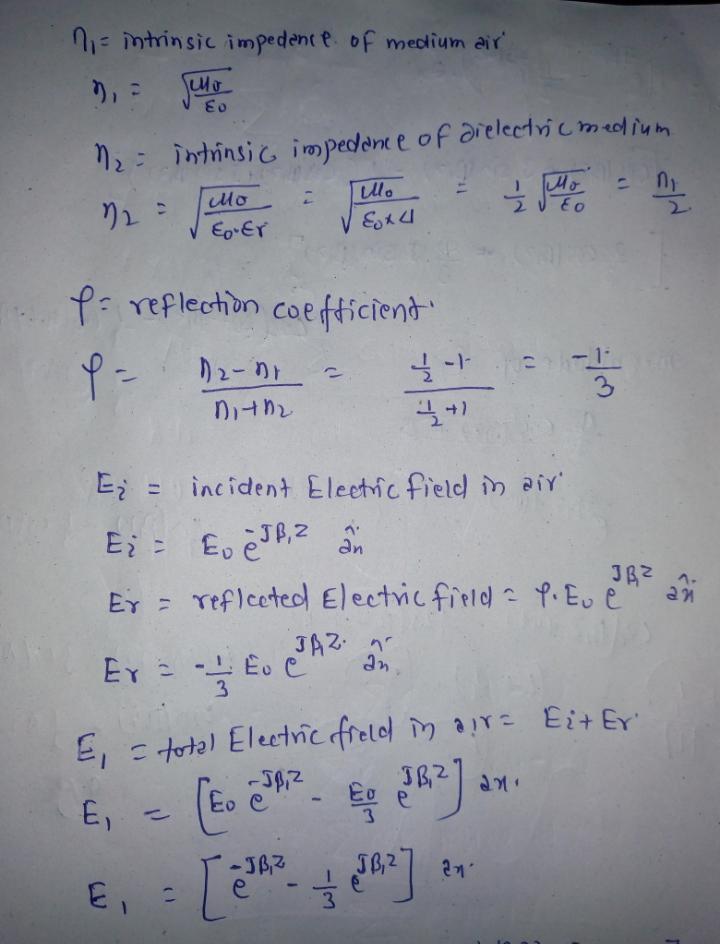 η₁ = intrinsic impedence of medium air
η₁ = √(μ₀/ε₀)
η₂ = intrinsic impedance of dielectric medium
η₂ = √(μ₀/(ε₀·εr)) = √(μ₀/(ε₀×4)) = 1/2 √(μ₀/ε₀) = η₁/2
ρ = reflection coefficient.
ρ = (η₂-η₁)/(η₁+η₂) = (1/2 -1)/(1/2 +1) = -1/3
Ei = incident Electric field in air
Ei = E₀ e^(-Jβ₁z) âx
Er = reflected Electric field = ρ.E₀ e^(Jβ₁z) âx
Er = -1/3 E₀ e^(Jβ₁z) âx
E₁ = total Electric field in air = Ei + Er
E₁ = [E₀ e^(-Jβ₁z) - E₀/3 e^(Jβ₁z)] ax.
E₁ = [e^(-Jβ₁z) - 1/3 e^(Jβ₁z)] ax.